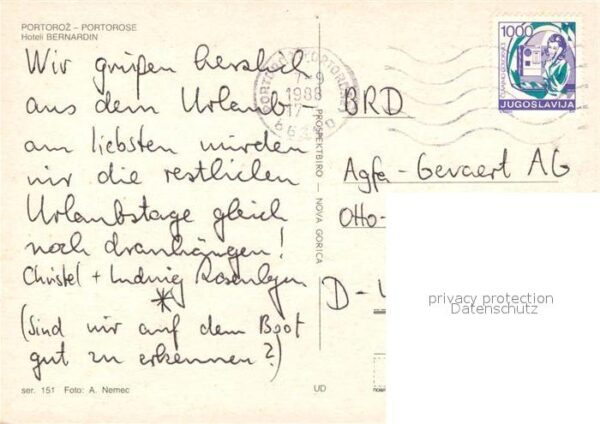 PORTOROŽ – PORTOROSE
Hoteli BERNARDIN
Wir grüßen herzlich
aus dem Urlaub –
am liebsten würden
wir die restlichen
Urlaubstage gleich
noch dranhängen!
Christel + Ludwig
(Sind wir auf dem Boot
gut zu erkennen?)
ser. 151 Foto: A. Nemec
UD
PROSPEKTBIRO — NOVA GORICA
1988
1000
JUGOSLAVIJA
BRD
Agfa-Gevaert AG
Otto-
D-
privacy protection
Datenschutz